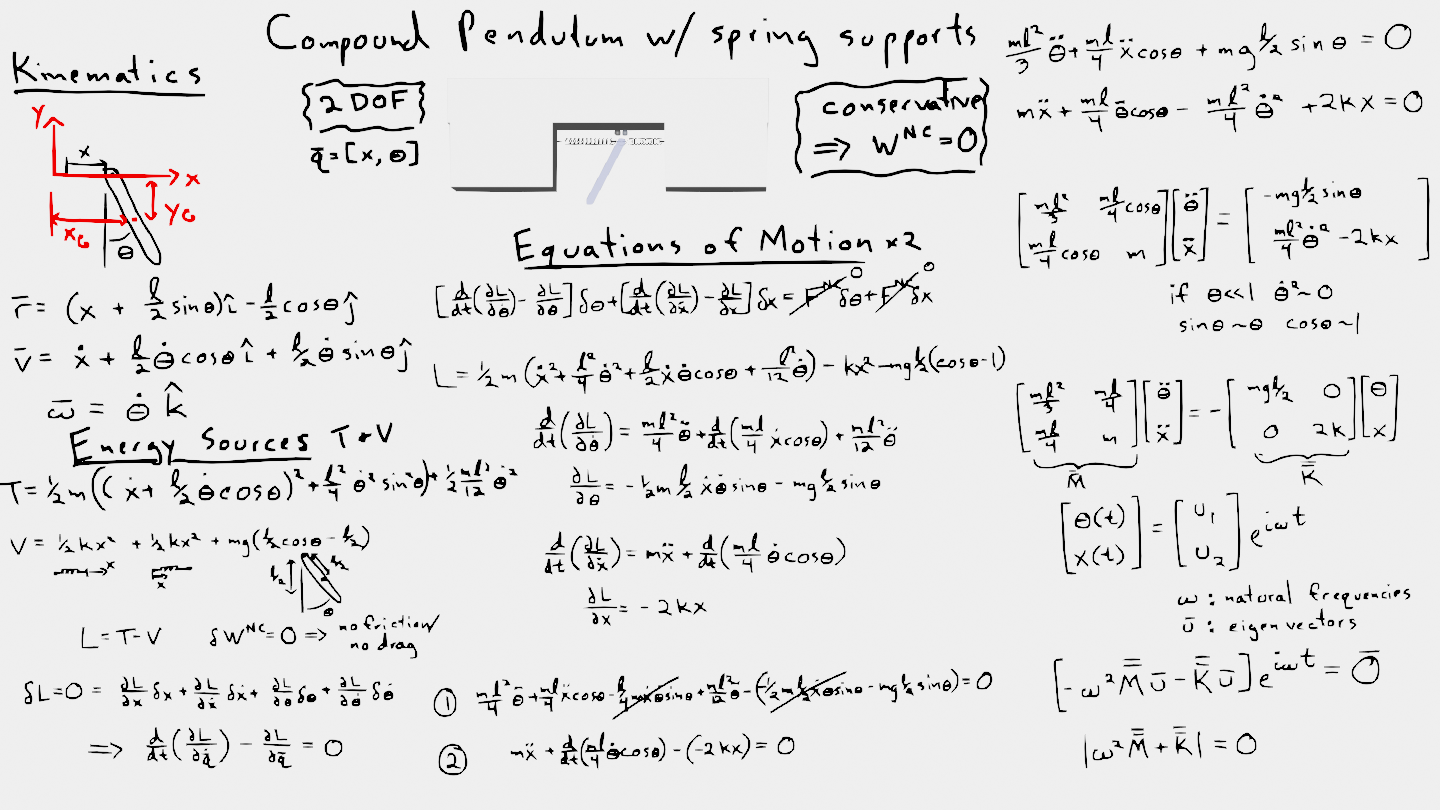 Compound Pendulum w/ spring supports
Kinematics
Y
x
x
Y_G
x_G
θ
r̄ = (x + l/2 sinθ)î - l/2 cosθ ĵ
v̄ = ẋ + l/2 θ̇ cosθ î + l/2 θ̇ sinθ ĵ
ω̄ = θ̇ k̂
Energy Sources T + V
T = 1/2 m((ẋ + l/2 θ̇ cosθ)² + l²/4 θ̇² sin²θ) + 1/2 ml²/12 θ̇²
V = 1/2 kx² + 1/2 kx² + mg(l/2 cosθ - l/2)
x
x
l/2
l/2
θ
L = T - V δW^NC = 0 => no friction/
no drag
δL = 0 = ∂L/∂x δx + ∂L/∂ẋ δẋ + ∂L/∂θ δθ + ∂L/∂θ̇ δθ̇
=> d/dt(∂L/∂q̄̇) - ∂L/∂q̄ = 0
2 DOF
q̄ = [x, θ]
conservative
=> W^NC = 0
Equations of Motion x2
[d/dt(∂L/∂θ̇) - ∂L/∂θ]δθ + [d/dt(∂L/∂ẋ) - ∂L/∂x]δx = F^NC δθ + F^NC δx
0 0
L = 1/2 m(ẋ² + l²/4 θ̇² + l/2 ẋθ̇cosθ + l²/12 θ̇) - kx² - mg l/2(cosθ-1)
d/dt(∂L/∂θ̇) = ml²/4 θ̈ + d/dt(ml/4 ẋcosθ) + ml²/12 θ̈
∂L/∂θ = -1/2 m l/2 ẋθ̇ sinθ - mg l/2 sinθ
d/dt(∂L/∂ẋ) = mẍ + d/dt(ml/4 θ̇cosθ)
∂L/∂x = -2kx
① ml²/4 θ̈ + ml/4 ẍcosθ - l/4 mẋθ̇sinθ + ml²/12 θ̈ - (-1/2 m l/2 ẋθ̇sinθ - mg l/2 sinθ) = 0
② mẍ + d/dt(ml/4 θ̇cosθ) - (-2kx) = 0
ml²/3 θ̈ + ml/4 ẍcosθ + mg l/2 sinθ = 0
mẍ + ml/4 θ̈cosθ - ml²/4 θ̇² + 2kx = 0
[ml²/3 ml/4 cosθ; ml/4 cosθ m][θ̈; ẍ] = [-mg l/2 sinθ; ml²/4 θ̇² - 2kx]
if θ<<1 θ̇² ~ 0
sinθ ~ θ cosθ ~ 1
[ml²/3 ml/4; ml/4 m][θ̈; ẍ] = -[mg l/2 0; 0 2k][θ; x]
M̿ K̿
[θ(t); x(t)] = [u₁; u₂] e^iωt
ω : natural frequencies
ū : eigenvectors
[-ω² M̿ ū - K̿ ū] e^iωt = 0̄
|ω² M̿ + K̿| = 0